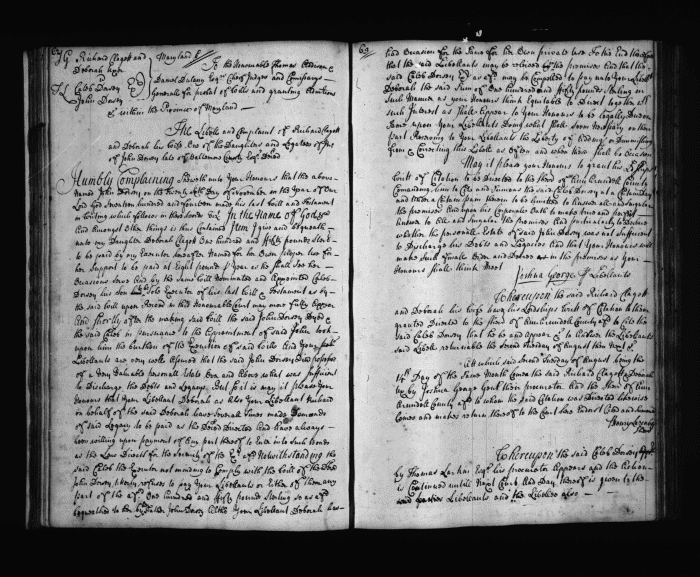 Richard Clagett and
Deborah his wife
Caleb Dorsey
John Dorsey
Maryland
To the Honourable Thomas Addison
Daniel Dulany Esqrs Chief Judges and Commissarys
Generall for probat of Wills and granting Admcons
within the Province of Maryland
The Libell and Complaint of Richard Clagett
and Deborah his wife One of the Daughters and Legatees of
of John Dorsey late of Baltemore County Esqr Decd
Humbly Complaining Sheweth unto Your Honours that the above
named John Dorsey on the Twenty day of in the Year of Our
Lord God Seventeen hundred and fourteen made his last Will and Testament
in Writing which follows in these words In the Name of God &c
And Amongst Other things is thus Contained Item I give and bequeath
unto my Daughter Deborah Clagett One hundred and fifty pounds Sterl
to be paid by my Executor hereafter Named for her Own proper use for
her Support to be paid at Eight pounds p Year as she shall See her
Occasions And by the Same Will Nominated and Appointed Caleb
Dorsey his Son Sole Executor of his last Will & Testament as by
the said Will upon Record in this Honourable Court may more fully Appear
And Shortly after the making said Will the said John Dorsey Dyed &
the said Caleb in pursuance to the Appointment of said John took
upon him the burthen of the Execution of said Will And Your
Libellants are very well Assured that the said John Dorsey Died possessed
of a Very Valuable personall Estate Over and Above what was Sufficient
to Discharge the Debts and Legacys. But So it is may it please Your
Honours that Your Libellant Deborah as Also Your Libellant Richard
in behalf of the said Deborah have Severall times made Demands
of said Legacy to be paid as the Will Directed And have always
been willing upon payment of Any part thereof to Enter into Such bonds
as the Law Directs for the Security of the Notwithstanding the
said Caleb the Executor not minding to Comply with the Will of the
John Dorsey refuses to pay Your Libellants or Either of them any
part of the One hundred and fifty pounds Sterling so as afd
bequeathed to her by Father John Dorsey Your Libellant Deborah has
63
had Occasion for the Same for her Own private use To the End therefore
that the said Libellants may be relieved in the premises And that the
said Caleb Dorsey as afd may be Compelled to pay unto Your Libellt
Deborah the said Sum of One hundred and fifty pounds Sterling in
Such Manner as your Honours think Equitable to Direct together with
such Interest as shall Appear to Your Honours to be Legally Due
upon Your Libellants Doing what shall Seem Necessary on their
part Reserving to Your Libellants the Liberty of Adding or Diminishing
from & Correcting this Libell as Often and when there shall be Occasion
May it please Your Honours to grant
Writ of Citation to be Directed to the Sheriff of Ann Arundell County
Commanding him to Cite and Summon the said Caleb Dorsey at a
and under a Certain pain therein to be limitted to Answer all and Singular
the premises And upon his Corporall Oath to make true and perfect
Answer to All and Singular the premises And particularly to Declare
whether the personall Estate of said John Dorsey was not Sufficient
to Discharge his Debts and Legacies And that Your Honours will
make Such further Order and Decree in the premises as Your
Honours shall think Meet
Joshua George p Libellants
Whereupon the said Richard Clagett
and Deborah his wife have his Lordships Writt of Citation to them
granted Directed to the Sheriff of Ann Arundell County to Cite the
said Caleb Dorsey that he be and Appear to Answer the Libellants
said Libell returnable the Second Tuesday of August then next
At which said Second Tuesday of August being the
14th Day of the Same Month Comes the said Richard Clagett & Deborah
by Joshua George Gent their procurator And the Sheriff of Ann
Arundell County to whom the said Citation was Directed likewise
Comes and makes return thereof to the Court here Endorst Cited and Summoned
Whereupon the said Caleb Dorsey
by Thomas Larkin Esqr his procurator Appears and the Same
is Continued untill Next Court And Day thereof is given to the
said parties Libellants and the Libellee also